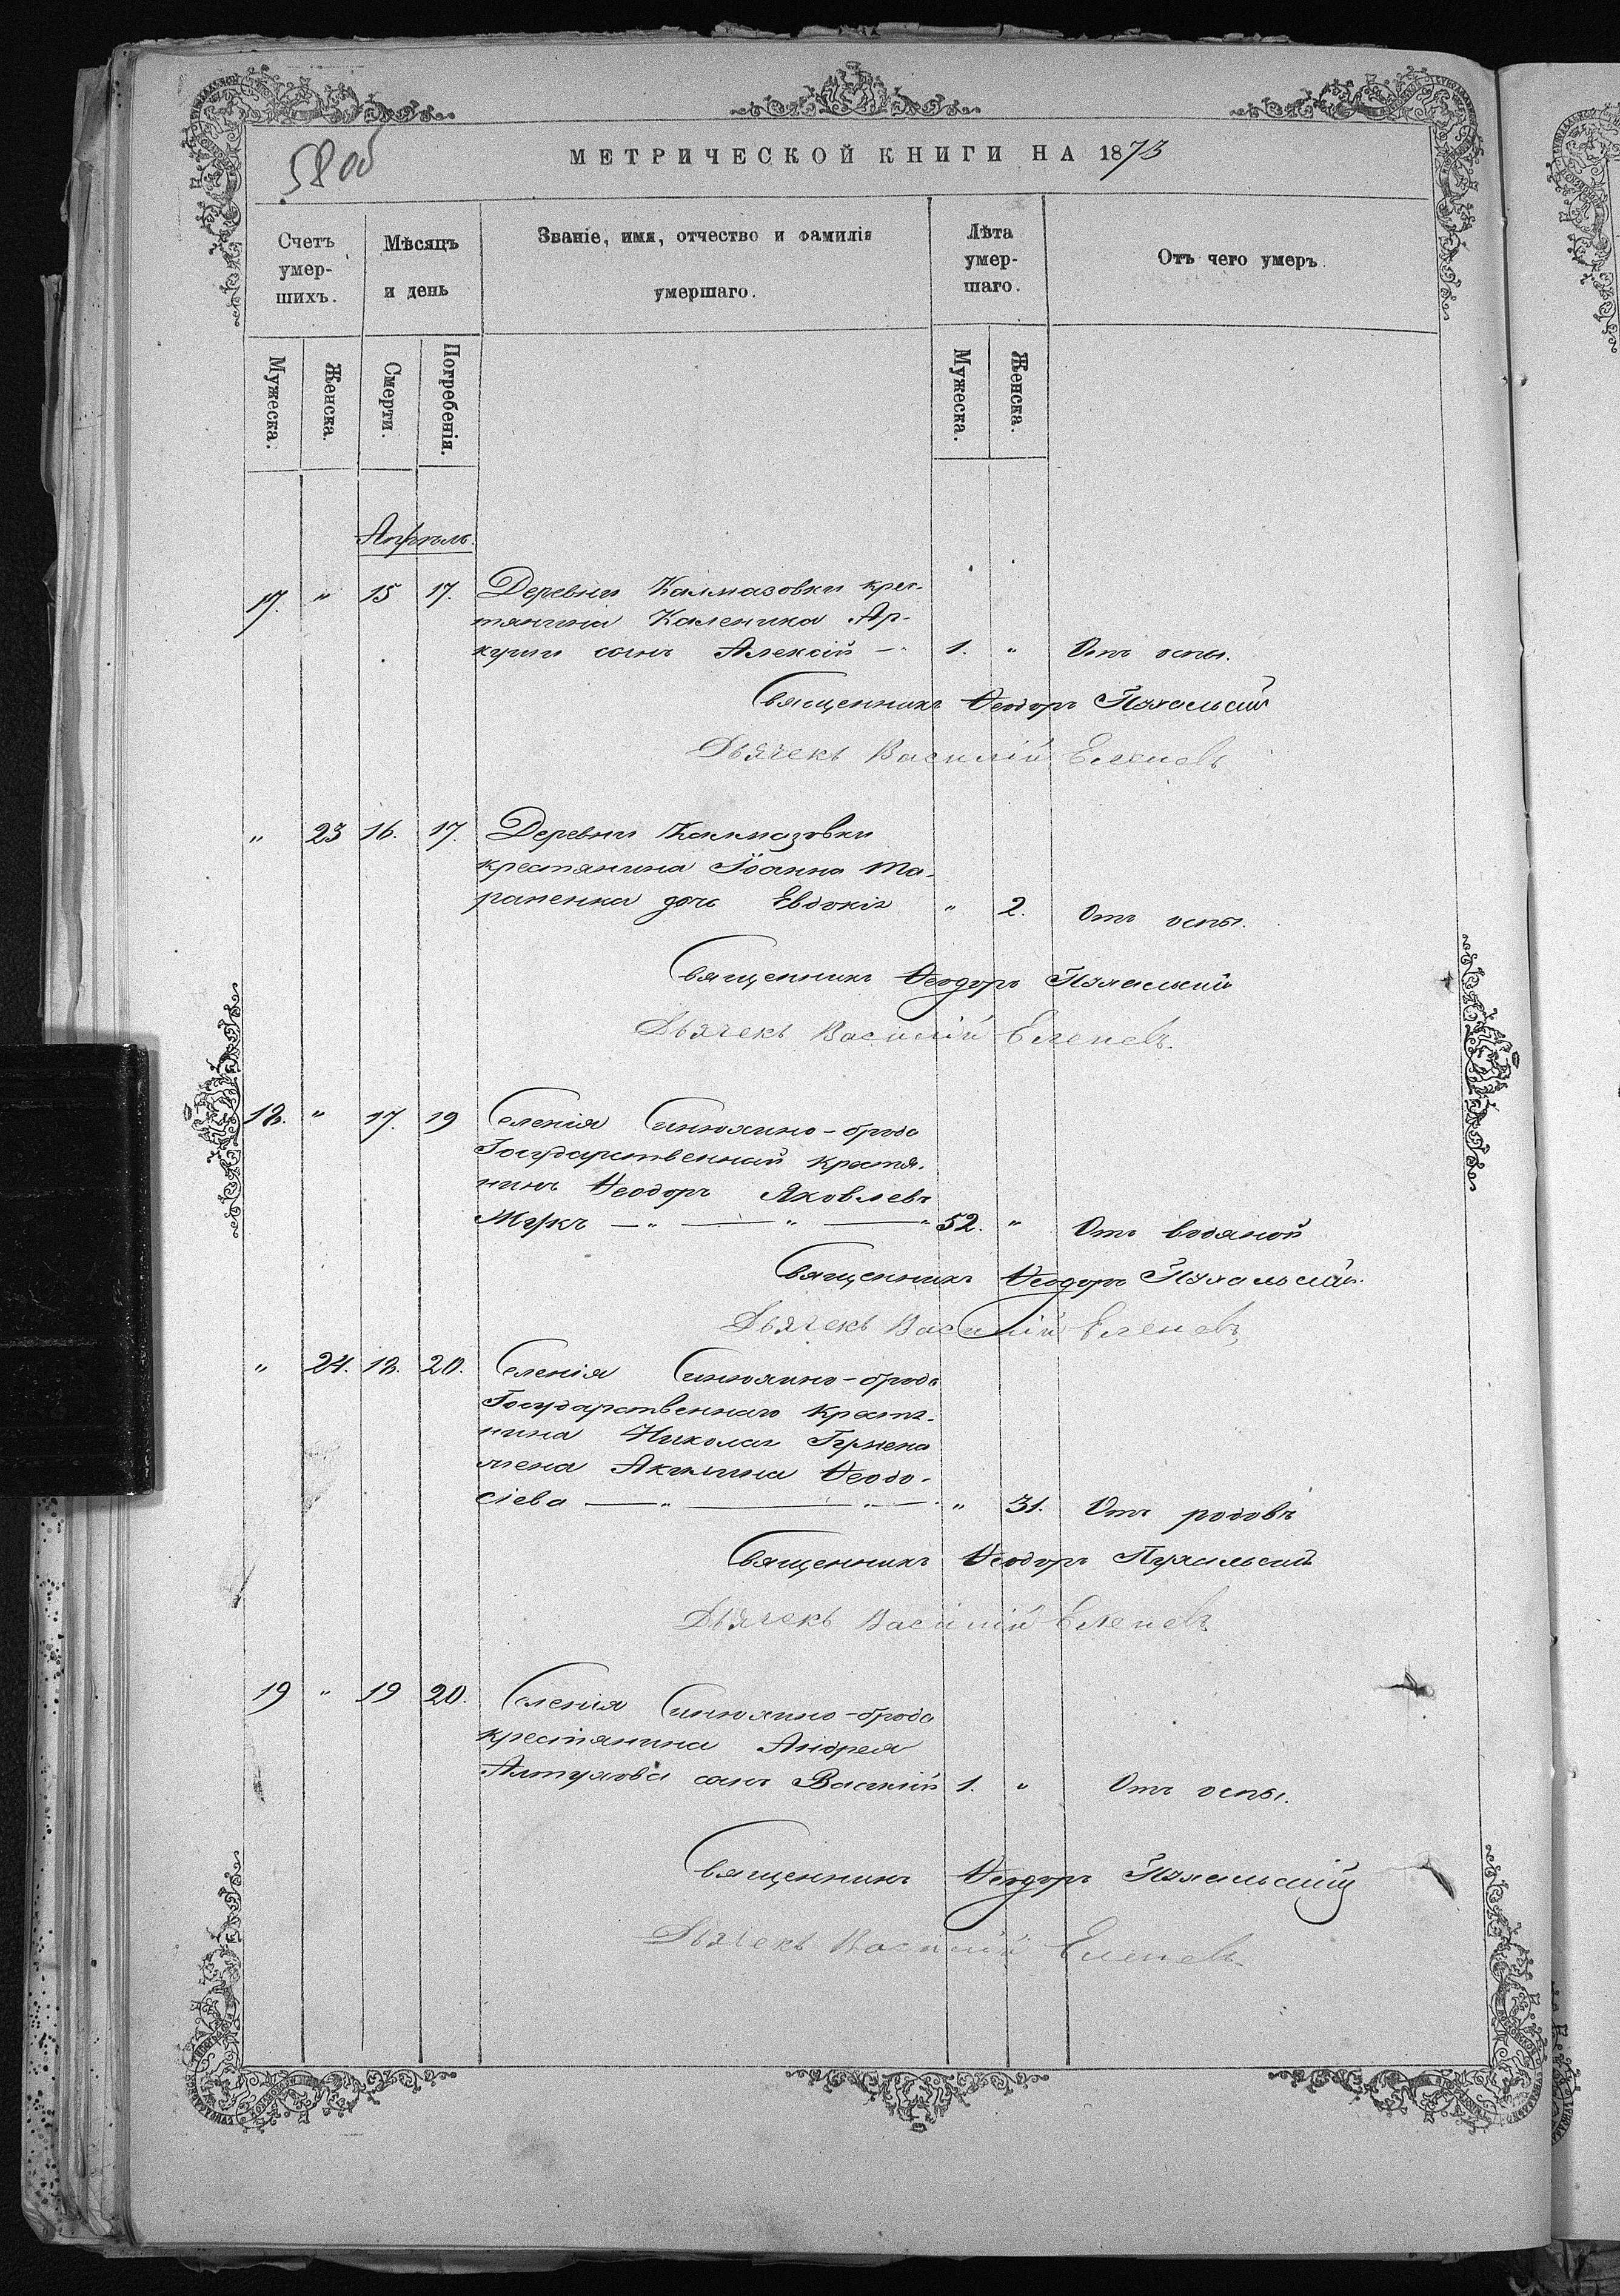 58 об
МЕТРИЧЕСКОЙ КНИГИ НА 1873
Счетъ умер-шихъ.
Мѣсяцъ и день
Званіе, имя, отчество и фамилія умершаго.
Лѣта умер-шаго.
Отъ чего умеръ.
Мужеска. Женска. Смерти. Погребенія. Мужеска. Женска.
Апрѣль.
17. " 15 17. Деревни Калмазовки крес-
тянина Каленика Ар-
куши сынъ Алексій — " 1. " Отъ оспы.
Священникъ Ѳеодоръ Пухальскій
Дьячекъ Василій Еленевъ
" 23 16. 17. Деревни Калмазовки
крестянина Іоанна Та-
раненка дочь Евдокія " 2. Отъ оспы.
Священникъ Ѳеодоръ Пухальскій
Дьячекъ Василій Еленевъ.
18. " 17. 19 Селенія Синюхино-брода
Государственный крестя-
нинъ Ѳеодоръ Яковлевъ
— " — " — " 52. " Отъ водяной
Священникъ Ѳеодоръ Пухальскій.
Дьячекъ Василій Еленевъ
" 24. 18. 20. Селенія Синюхино-брода
Государственнаго крестя-
нина Николая
жена Акилина Ѳеодо-
сіева — " — " — " 31. Отъ родовъ
Священникъ Ѳеодоръ Пухальскій
Дьячекъ Василій Еленевъ
19 " 19 20. Селенія Синюхино-брода
крестіянина Андрея
Алтухова сынъ Василій 1. " Отъ оспы.
Священникъ Ѳеодоръ Пухальскій
Дьячекъ Василій Еленевъ.